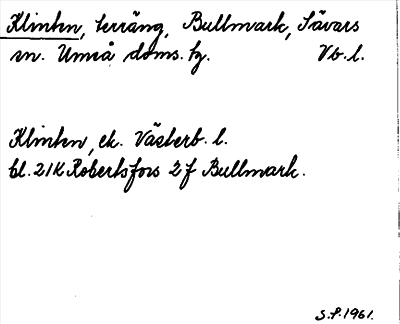 Klinten, terräng, Bullmark, Sävars
sn. Umeå doms. tg. Vb. l.
Klinten, ek. Västerb. l.
bl. 21K Robertsfors 2 f Bullmark.
S.P. 1961.